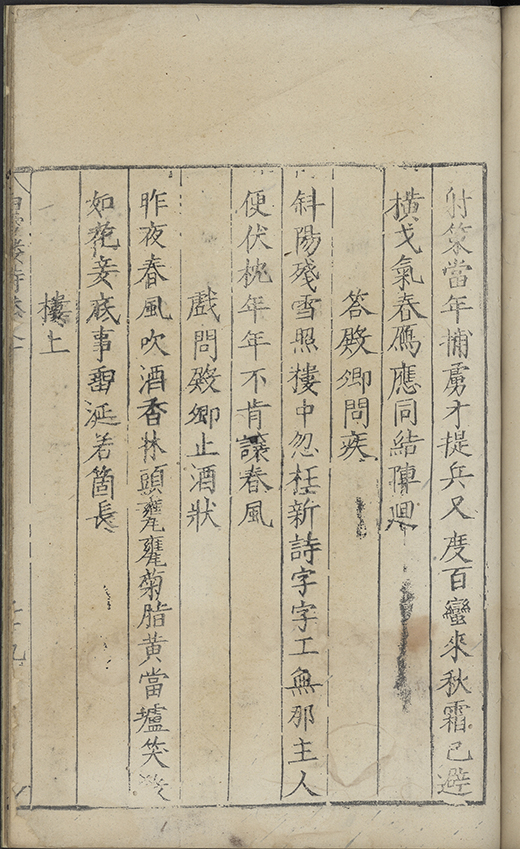 射策當年捕虜才提兵又度百蠻來秋霜已避
橫戈氣春鴈應同結陣迴
答殿卿問疾
斜陽殘雪照樓中忽枉新詩字字工無那主人
便伏枕年年不肯讓春風
戲問殿卿止酒狀
昨夜春風吹酒香牀頭甕甕菊脂黃當壚笑殺
如花妾底事畱涎若箇長
樓上
白雪樓詩卷
十九